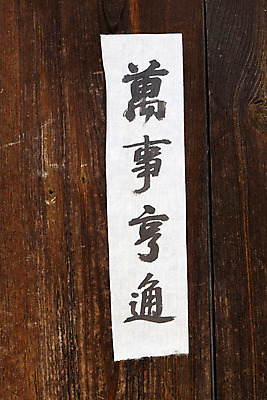 萬事亨通